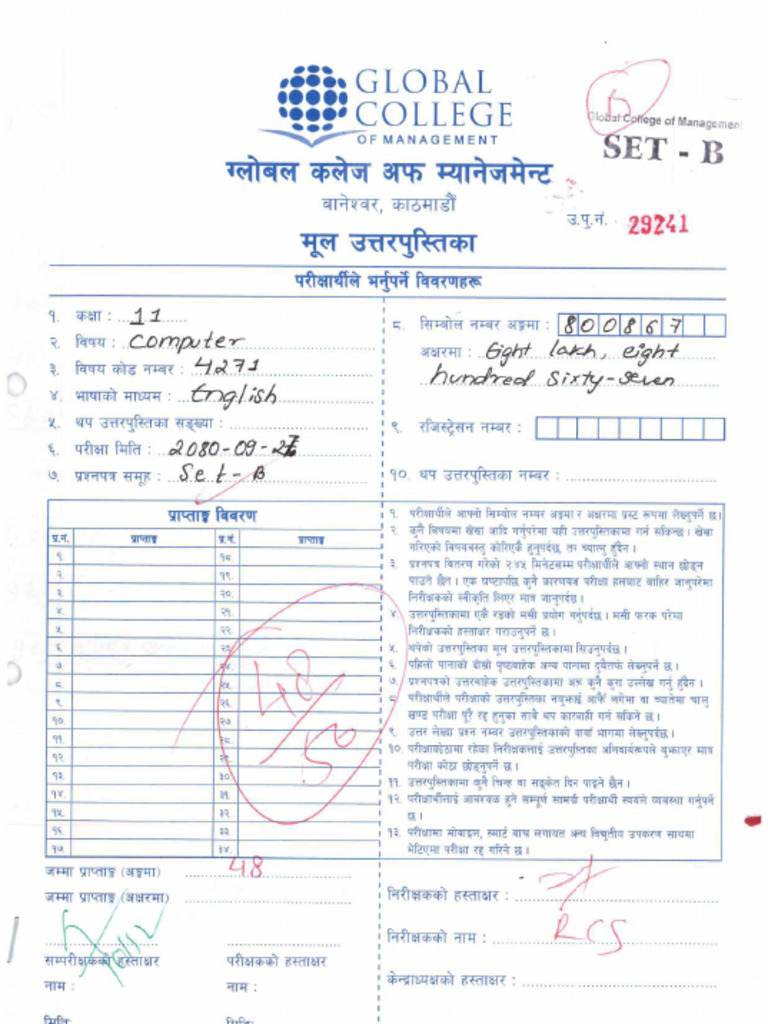 GLOBAL
COLLEGE
OF MANAGEMENT
Global College of Management
SET - B
ग्लोबल कलेज अफ म्यानेजमेन्ट
बानेश्वर, काठमाडौं
उ.पु.नं. 29241
मूल उत्तरपुस्तिका
परीक्षार्थीले भर्नुपर्ने विवरणहरू
१. कक्षा : 11
२. विषय : Computer
३. विषय कोड नम्बर : 4271
४. भाषाको माध्यम : English
५. थप उत्तरपुस्तिका सङ्ख्या :
६. परीक्षा मिति : 2080-09-27
७. प्रश्नपत्र समूह : Set-B
८. सिम्बोल नम्बर अङ्कमा : 800867
अक्षरमा : Eight lakh, eight
hundred sixty-seven
९. रजिस्ट्रेसन नम्बर :
१०. थप उत्तरपुस्तिका नम्बर :
प्राप्ताङ्क विवरण
प्र.नं. प्राप्ताङ्क प्र.नं. प्राप्ताङ्क
१. १८.
२. १९.
३. २०.
४. २१.
५. २२.
६. २३.
७. २४.
८. २५.
९. २६.
१०. २७
११. २८
१२. २९.
१३. ३०
१४. ३१.
१५. ३२
१६. ३३
१७ ३४.
48/50
१. परीक्षार्थीले आफ्नो सिम्बोल नम्बर अङ्कमा र अक्षरमा प्रस्ट रूपमा लेख्नुपर्ने छ।
२. कुनै विषयमा खेस्रा आदि गर्नुपरेमा यही उत्तरपुस्तिकामा गर्न सकिन्छ। खेस्रा
गरिएको विषयवस्तु कोरिएकै हुनुपर्दछ, तर च्यात्नु हुँदैन।
३. प्रश्नपत्र वितरण गरेको २:४५ मिनेटसम्म परीक्षार्थीले आफ्नो स्थान छोड्न
पाउने छैन। एक घण्टापछि कुनै कारणवश परीक्षा हलबाट बाहिर जानुपरेमा
निरीक्षकको स्वीकृति लिएर मात्र जानुपर्दछ।
४. उत्तरपुस्तिकामा एकै रङको मसी प्रयोग गर्नुपर्दछ। मसी फरक परेमा
निरीक्षकको हस्ताक्षर गराउनुपर्ने छ।
५. थपेको उत्तरपुस्तिका मूल उत्तरपुस्तिकामा सिउनुपर्दछ।
६. पहिलो पानाको दोस्रो पृष्ठबाहेक अन्य पानामा दुवैतर्फ लेख्नुपर्ने छ।
७. प्रश्नपत्रको उत्तरबाहेक उत्तरपुस्तिकामा अरू कुनै कुरा उल्लेख गर्नु हुँदैन।
८ परीक्षार्थीले परीक्षाको उत्तरपुस्तिका नबुझाई आफैँ लगेमा वा च्यातेमा चालु
खण्ड परीक्षा पूरै रद्द हुनुका साथै थप कारबाही गर्न सकिने छ।
९. उत्तर लेख्दा प्रश्न नम्बर उत्तरपुस्तिकाको बायाँ भागमा लेख्नुपर्दछ।
१०. परीक्षाकोठामा रहेका निरीक्षकलाई उत्तरपुस्तिका अनिवार्यरूपले बुझाएर मात्र
परीक्षा कोठा छोड्नुपर्ने छ।
११. उत्तरपुस्तिकामा कुनै चिन्ह वा सङ्केत दिन पाइने छैन।
१२. परीक्षार्थीलाई आवश्यक हुने सम्पूर्ण सामग्री परीक्षार्थी स्वयंले व्यवस्था गर्नुपर्ने
छ।
१३. परीक्षामा मोबाइल, स्मार्ट वाच लगायत अन्य विद्युतीय उपकरण साथमा
भेटिएमा परीक्षा रद्द गरिने छ।
जम्मा प्राप्ताङ्क (अङ्कमा) 48
जम्मा प्राप्ताङ्क (अक्षरमा)
सम्परीक्षकको हस्ताक्षर परीक्षकको हस्ताक्षर
नाम : नाम :
मिति: मिति:
निरीक्षकको हस्ताक्षर :
निरीक्षकको नाम : RCS
केन्द्राध्यक्षको हस्ताक्षर :